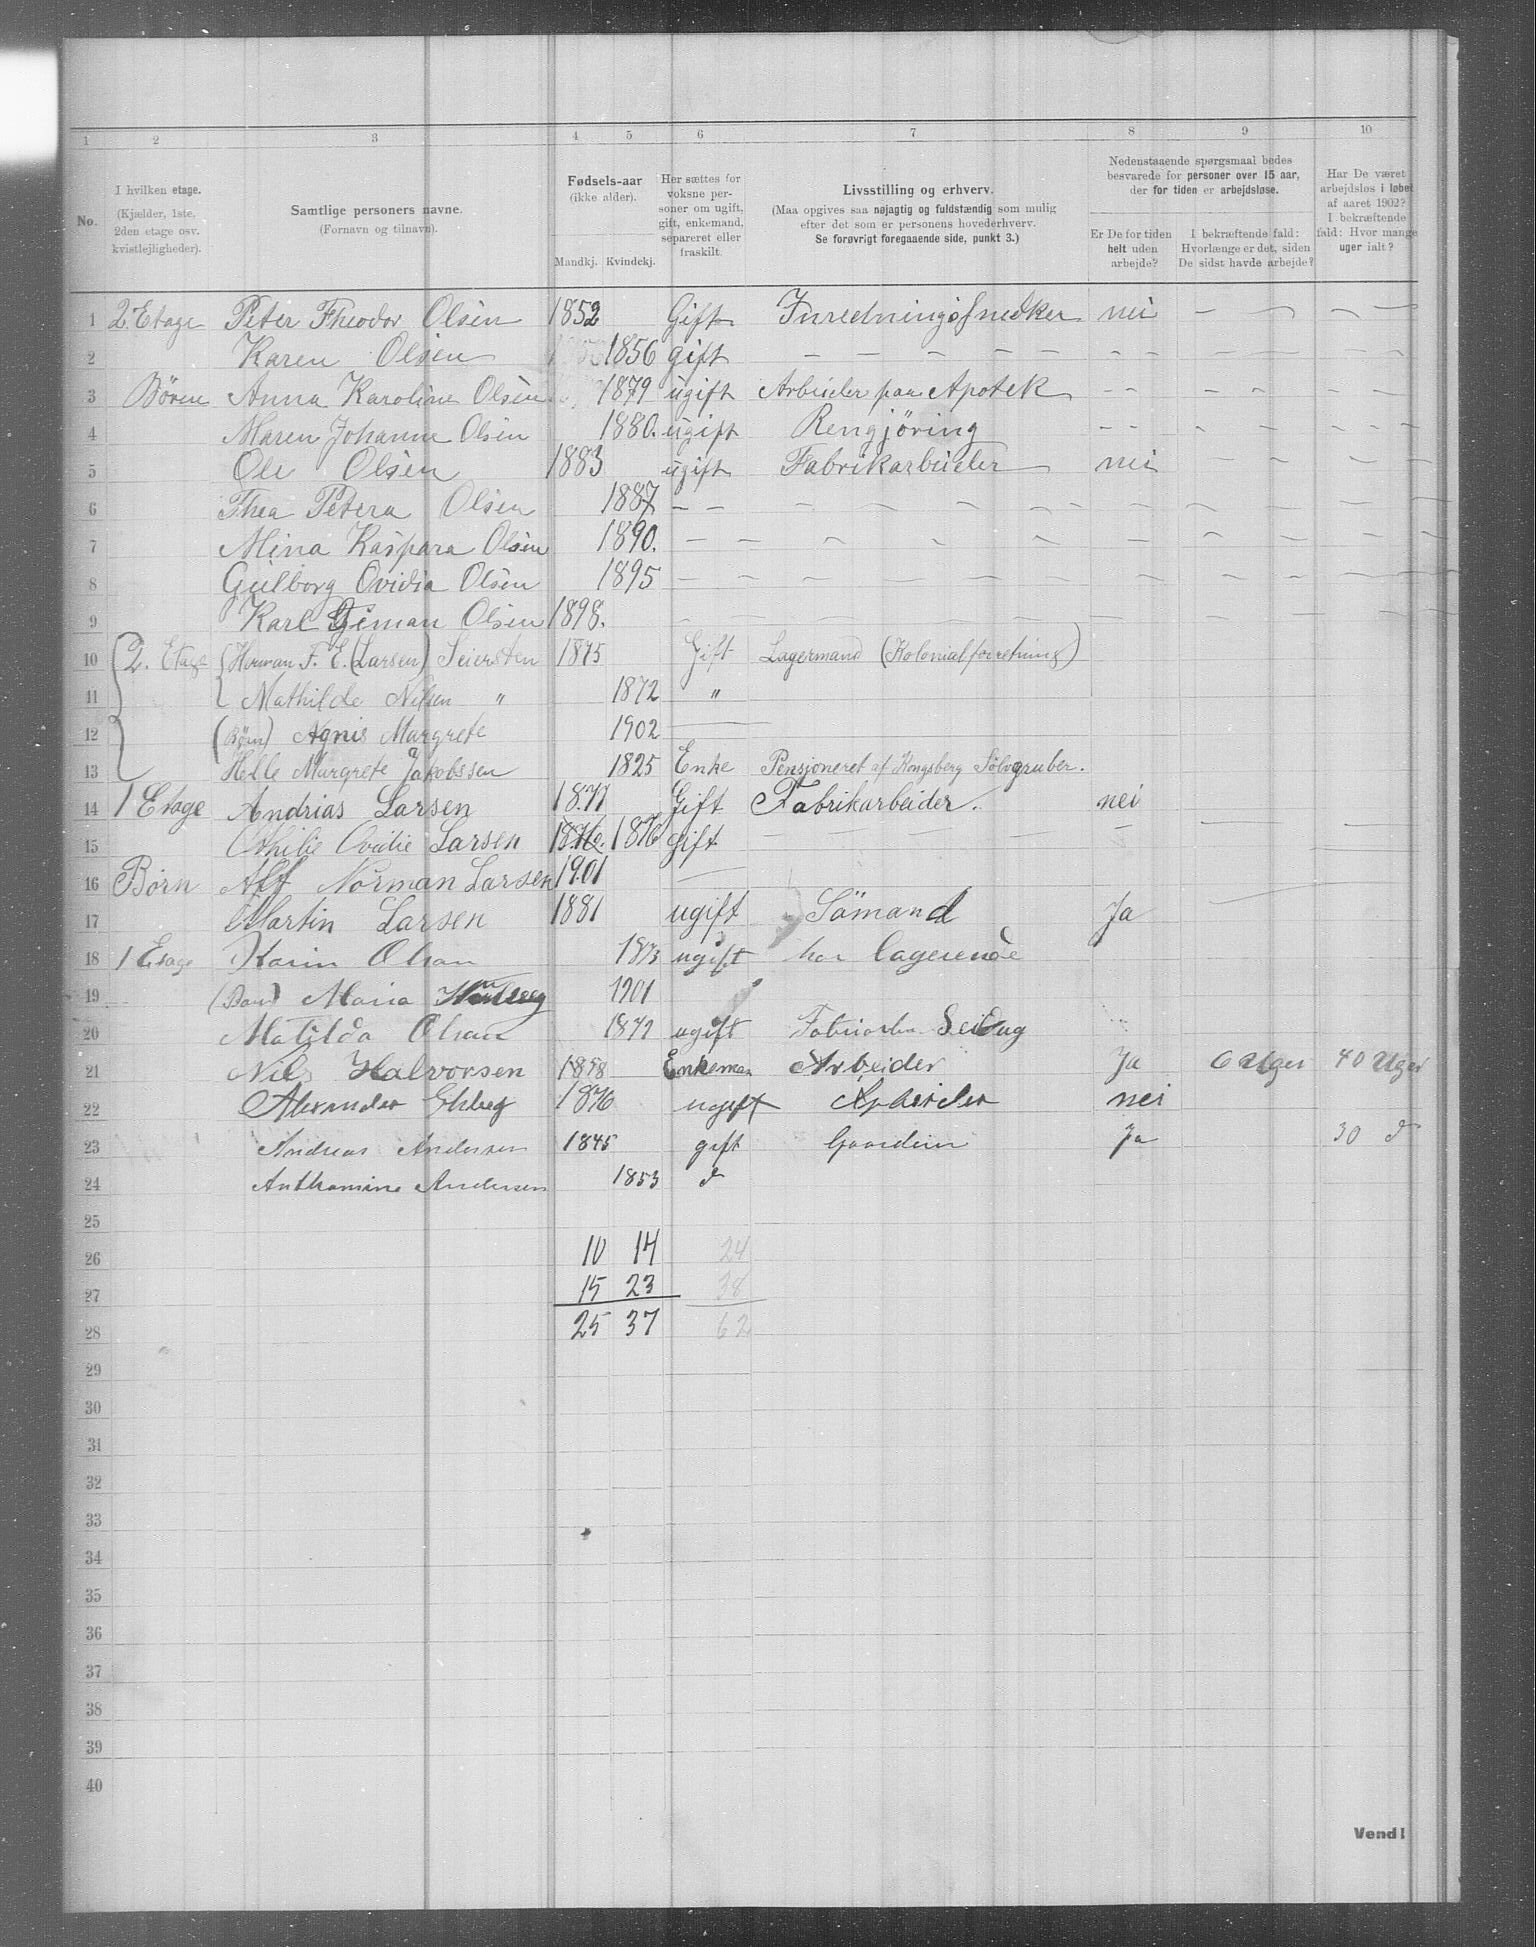 1 2 3 4 5 6 7 8 9 10
No.
I hvilken etage.
(Kjælder, 1ste.
2den etage osv.
kvistlejligheder).
Samtlige personers navne.
(Fornavn og tilnavn).
Fødsels-aar
(ikke alder).
Mandkj. Kvindekj.
Her sættes for
voksne per-
soner om ugift,
gift, enkemand,
separeret eller
fraskilt.
Livsstilling og erhverv.
(Maa opgives saa nøjagtig og fuldstændig som mulig
efter det som er personens hovederhverv.
Se forøvrigt foregaaende side, punkt 3.)
Nedenstaaende spørgsmaal bedes
besvarede for personer over 15 aar,
der for tiden er arbejdsløse.
Er De for tiden
helt uden
arbejde?
I bekræftende fald:
Hvorlænge er det, siden
De sidst havde arbejde?
Har De været
arbejdsløs i løbet
af aaret 1902?
I bekræftende
fald: Hvor mange
uger ialt?
1 2. Etage Peter Theodor Olsen 1852 Gift Inredningssnedker nei — — — —
2 Karen Olsen 1856 gift — — — — — —
3 Børen Anna Karoline Olsen 1879 ugift Arbeider paa Apotek — —
4 Maren Johanne Olsen 1880. ugift Rengjöring — — —
5 Ole Olsen 1883 ugift Fabrikarbeider nei — —
6 Thea Petera Olsen 1887 — —
7 Mina Kaspara Olsen 1890. — —
8 Gulborg Ovidia Olsen 1895 — —
9 Karl Olsen 1898.
10 2. Etage (Herman F. E. (Larsen) Seiersten 1875 Gift Lagermand (Kolonialforretning)
11 Mathilde Nilsen " 1872 "
12 (Børn) Agnis Margrete 1902
13 Helle Margrete Jakobssen 1825 Enke Pensjoneret af Kongsberg Sölvgruber.
14 1 Etage Andrias Larsen 1877 Gift Fabrikarbeider. nei
15 Othilie Ovidie Larsen 1876. 1876 gift
16 Børn Alf Norman Larsen 1901
17 Martin Larsen 1881 ugift Sömand Ja
18 1 Etage Karin Olsan 1873 ugift har lagerende
19 (Barn) Maria 1901
20 Matilda Olsan 1872 ugift
21 Nils Halvorsen 1858 Enkeman Arbeider Ja 6 Uger 40 Uger
22 Alexander Ekberg 1876 ugift Arbeider nei
23 Andreas Andersen 1845 gift Ja 30 d
24 Anthomine Andersen 1853 d
25
26 10 14 24
27 15 23 38
28 25 37 62
29
30
31
32
33
34
35
36
37
38
39
40
Vend!